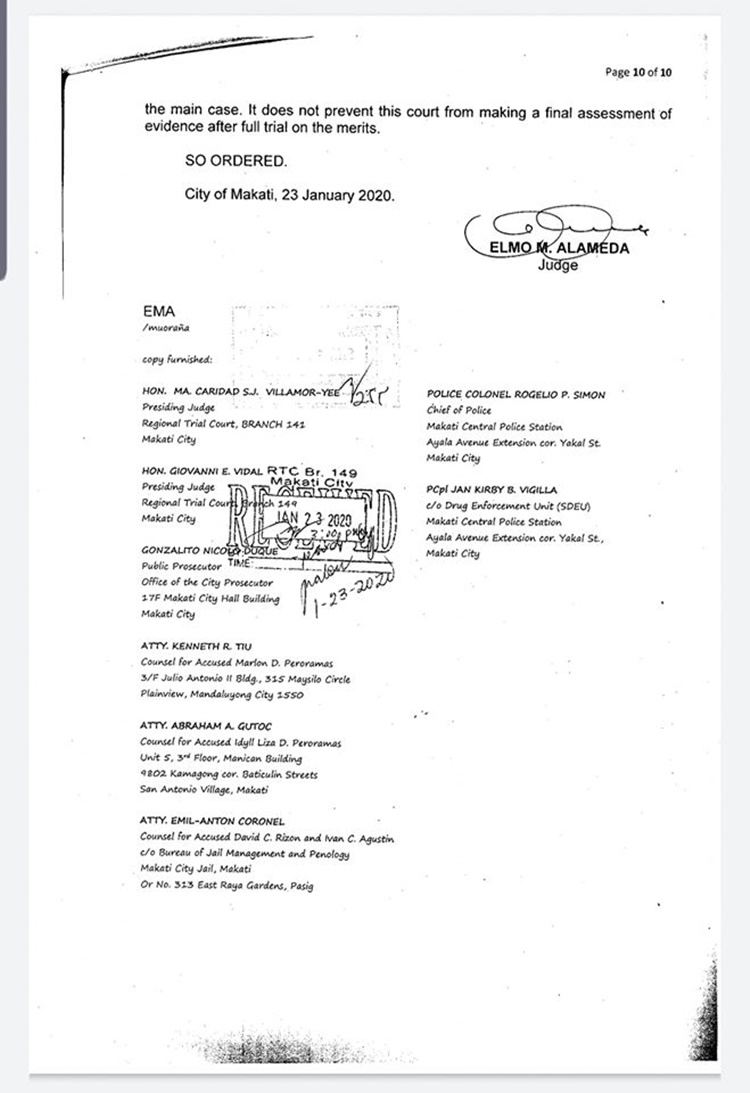 Page 10 of 10
the main case. It does not prevent this court from making a final assessment of
evidence after full trial on the merits.
SO ORDERED.
City of Makati, 23 January 2020.
ELMO M. ALAMEDA
Judge
EMA
/muoraña
copy furnished:
HON. MA. CARIDAD S.J. VILLAMOR-YEE
Presiding Judge
Regional Trial Court, BRANCH 141
Makati City
HON. GIOVANNI E. VIDAL
Presiding Judge
Regional Trial Court, Branch 149
Makati City
RTC Br. 149
Makati City
RECEIVED
JAN 23 2020
3:00
TIME:
1-23-2020
GONZALITO NICOLO DUQUE
Public Prosecutor
Office of the City Prosecutor
17F Makati City Hall Building
Makati City
ATTY. KENNETH R. TIU
Counsel for Accused Marlon D. Peroramas
3/F Julio Antonio II Bldg., 315 Maysilo Circle
Plainview, Mandaluyong City 1550
ATTY. ABRAHAM A. GUTOC
Counsel for Accused Idyll Liza D. Peroramas
Unit 5, 3rd Floor, Manican Building
9802 Kamagong cor. Baticulin Streets
San Antonio Village, Makati
ATTY. EMIL-ANTON CORONEL
Counsel for Accused David C. Rizon and Ivan C. Agustin
c/o Bureau of Jail Management and Penology
Makati City Jail, Makati
Or No. 313 East Raya Gardens, Pasig
POLICE COLONEL ROGELIO P. SIMON
Chief of Police
Makati Central Police Station
Ayala Avenue Extension cor. Yakal St.
Makati City
PCpl JAN KIRBY B. VIGILLA
c/o Drug Enforcement Unit (SDEU)
Makati Central Police Station
Ayala Avenue Extension cor. Yakal St.,
Makati City